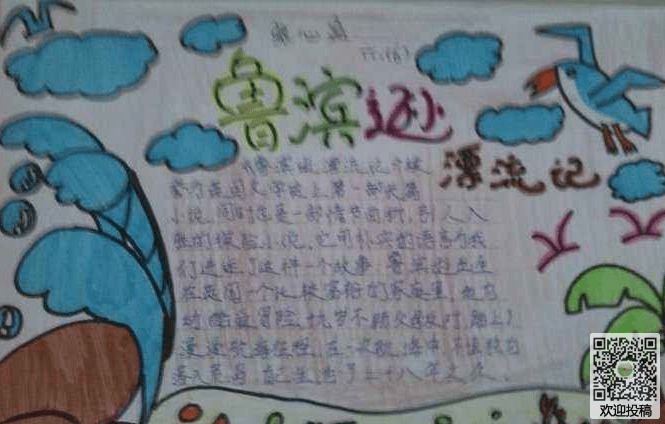 鲁滨逊
漂流记
《鲁滨逊漂流记》被
誉为英国文学史上第一部长篇
小说，同时也是一部情节曲折，引人入
胜的探险小说，它用朴实的语言为我
们讲述了这样一个故事：鲁滨逊出生
在英国一个比较富裕的家庭里，他自
幼酷爱冒险，执意不顾父母反对，踏上了
漫漫航海征程，在一次航海中，不慎
落入荒岛，自己生活了二十八年之久。
欢迎投稿